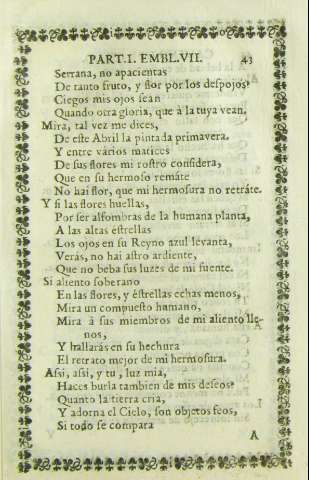 PART.I. EMBL.VII. 43
Serrana, no apacientas
De tanto fruto, y flor por los despojos?
Ciegos mis ojos seàn
Quando otra gloria, que à la tuya vean.
Mira, tal vez me dices,
De este Abril la pintada primavera.
Y entre varios matices
De sus flores mi rostro considera,
Que en su hermoso remáte
No hai flor, que mi hermosura no retráte.
Y si las flores huellas,
Por ser alfombras de la humana planta,
A las altas éstrellas
Los ojos en su Reyno azul levànta,
Verás, no hai astro ardiente,
Que no beba sus luzes de mi fuente.
Si aliento soberano
En las flores, y éstrellas echas menos,
Mira un compuesto humano,
Mira à sus miembros de mi aliento lle-
nos,
Y hallarás en su hechura
El retrato mejor de mi hermosura.
Assi, assi, y tu, luz mia,
Haces burla tambien de mis deseos?
Quanto la tierra cria,
Y adorna el Cielo, son objetos feos,
Si todo se compara
A